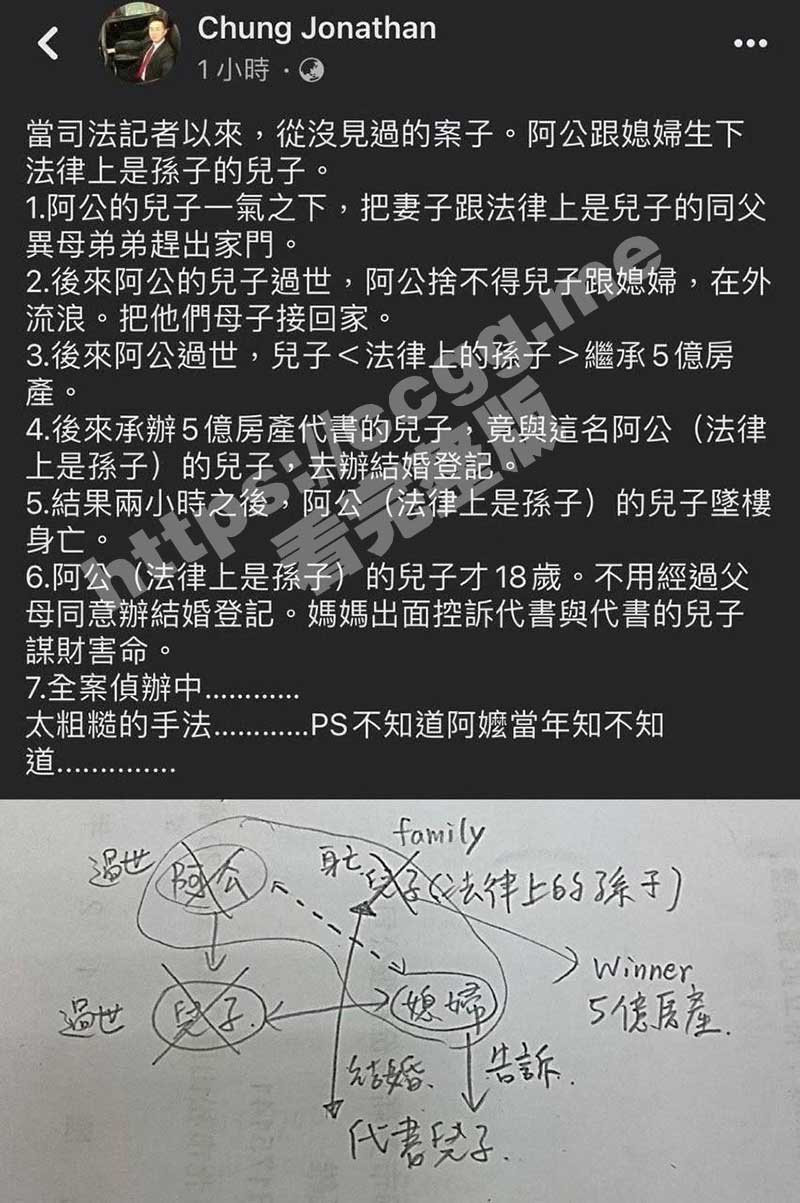 Chung Jonathan
1小時 ·
當司法記者以來，從沒見過的案子。阿公跟媳婦生下
法律上是孫子的兒子。
1.阿公的兒子一氣之下，把妻子跟法律上是兒子的同父
異母弟弟趕出家門。
2.後來阿公的兒子過世，阿公捨不得兒子跟媳婦，在外
流浪。把他們母子接回家。
3.後來阿公過世，兒子＜法律上的孫子＞繼承5億房
產。
4.後來承辦5億房產代書的兒子，竟與這名阿公（法律
上是孫子）的兒子，去辦結婚登記。
5.結果兩小時之後，阿公（法律上是孫子）的兒子墜樓
身亡。
6.阿公（法律上是孫子）的兒子才18歲。不用經過父
母同意辦結婚登記。媽媽出面控訴代書與代書的兒子
謀財害命。
7.全案偵辦中............
太粗糙的手法............PS不知道阿嬤當年知不知
道..............
https://ccgg.me
看完整版
family
過世 阿公 身亡 兒子(法律上的孫子)
Winner
過世 兒子 媳婦 5億房產.
結婚. 告訴.
代書兒子.